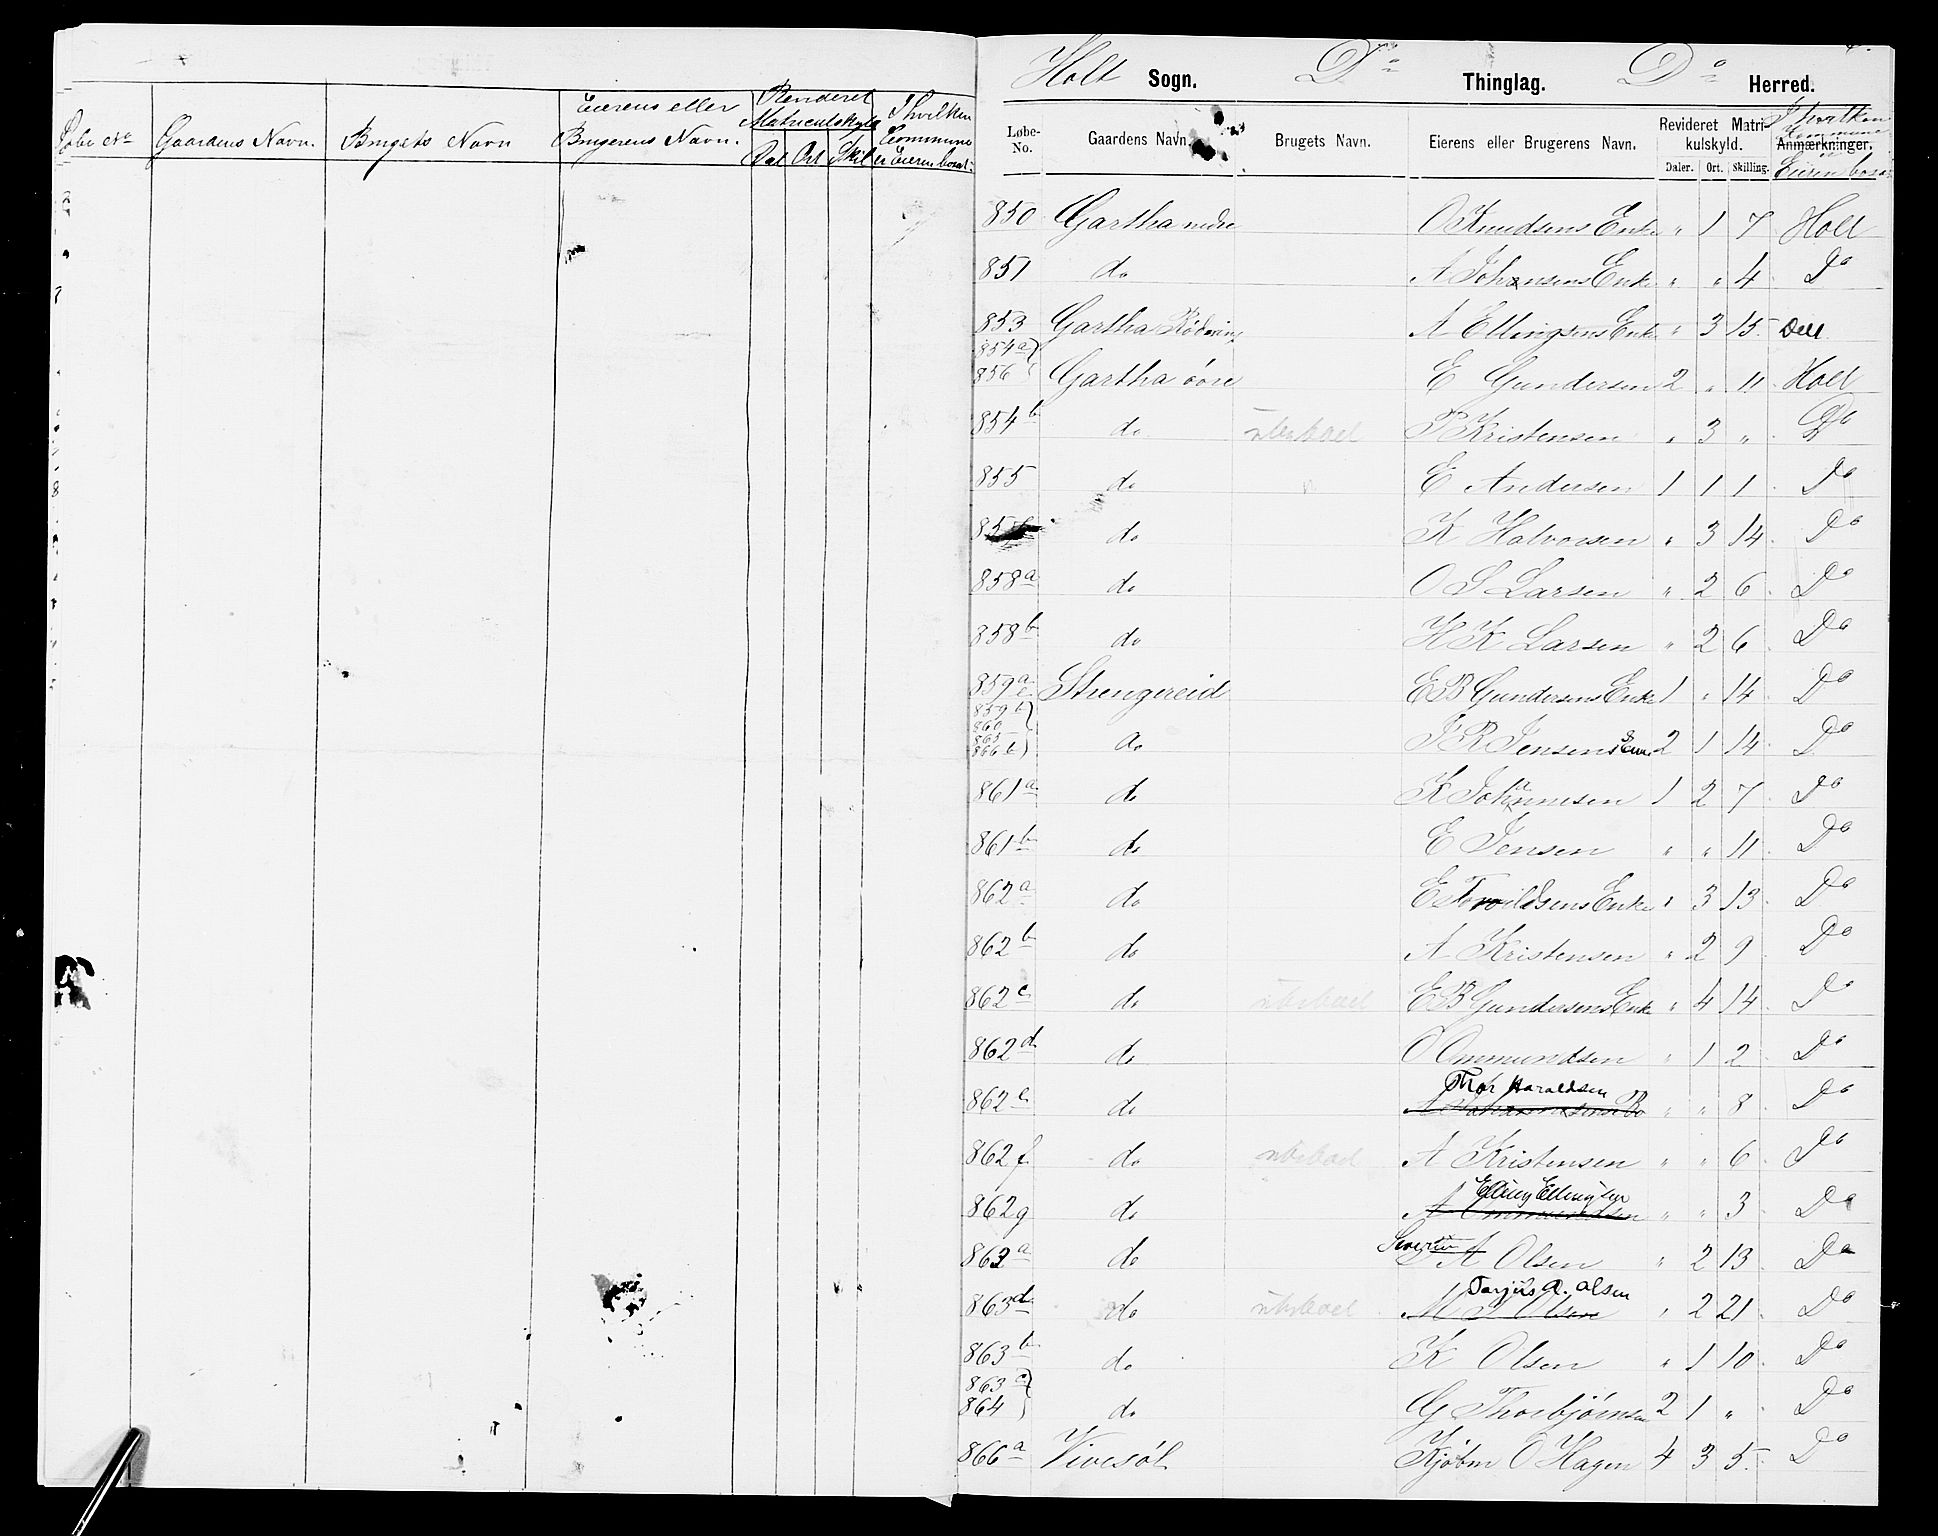 Løbe No
Gaardens Navn.
Brugets Navn
Eierens eller
Brugerens Navn.
Revideret
Matriculskyld
Dal Ort Skil
I hvilken
Commune
er Eieren bosat.
Holt Sogn. Do Thinglag. Do Herred.
Løbe-No.
Gaardens Navn.
Brugets Navn.
Eierens eller Brugerens Navn.
Revideret Matri-
kulskyld.
Daler. Ort. Skilling.
I hvilken
Kommune
Anmærkninger.
er
Eieren bosat
850 Gartha nedre O Knudsens Enke " 1 7 Holt
851 do A Johansens Enke " " 4 Do
853 Gartha A Ellingsens Enke " 3 15 Do
854a
856 Gartha övre E Gundersen 2 " 11 Holt
854b do P Kristensen " 3 " Do
855 do E Andersen 1 1 1 Do
do K Halvorsen " 3 14 Do
858a do O S Larsen " 2 6 Do
858b do H K Larsen " 2 6 Do
859a c Strengereid E B Gundersens Enke 1 " 14 Do
859b
860
865
866b do J R Jensens Enke 2 1 14 Do
861a do K Johannesen 1 2 7 Do
861b do E Jensen " " 11 Do
862a do E Torvildsens Enke " 3 13 Do
862b do A Kristensen " 2 9 Do
862c do ubeboet E B Gundersens Enke " 4 14 Do
862d do O Ommundsen " 1 2 Do
Thor Haraldsen
862e do " " 8 Do
862f do ubeboet A Kristensen " " 6 Do
Elling Ellingsen
862g do A Ommundsen " " 3 Do
863a do A Olsen " 2 13 Do
Torjus A. Olsen
863d do ubeboet M T Olsen " 2 21 Do
863b do K Olsen " 1 10 Do
863c
864 do G Thorbjörnsen 2 1 " Do
866a Vivesöl Kjöbm O Hagen 4 3 5 Do